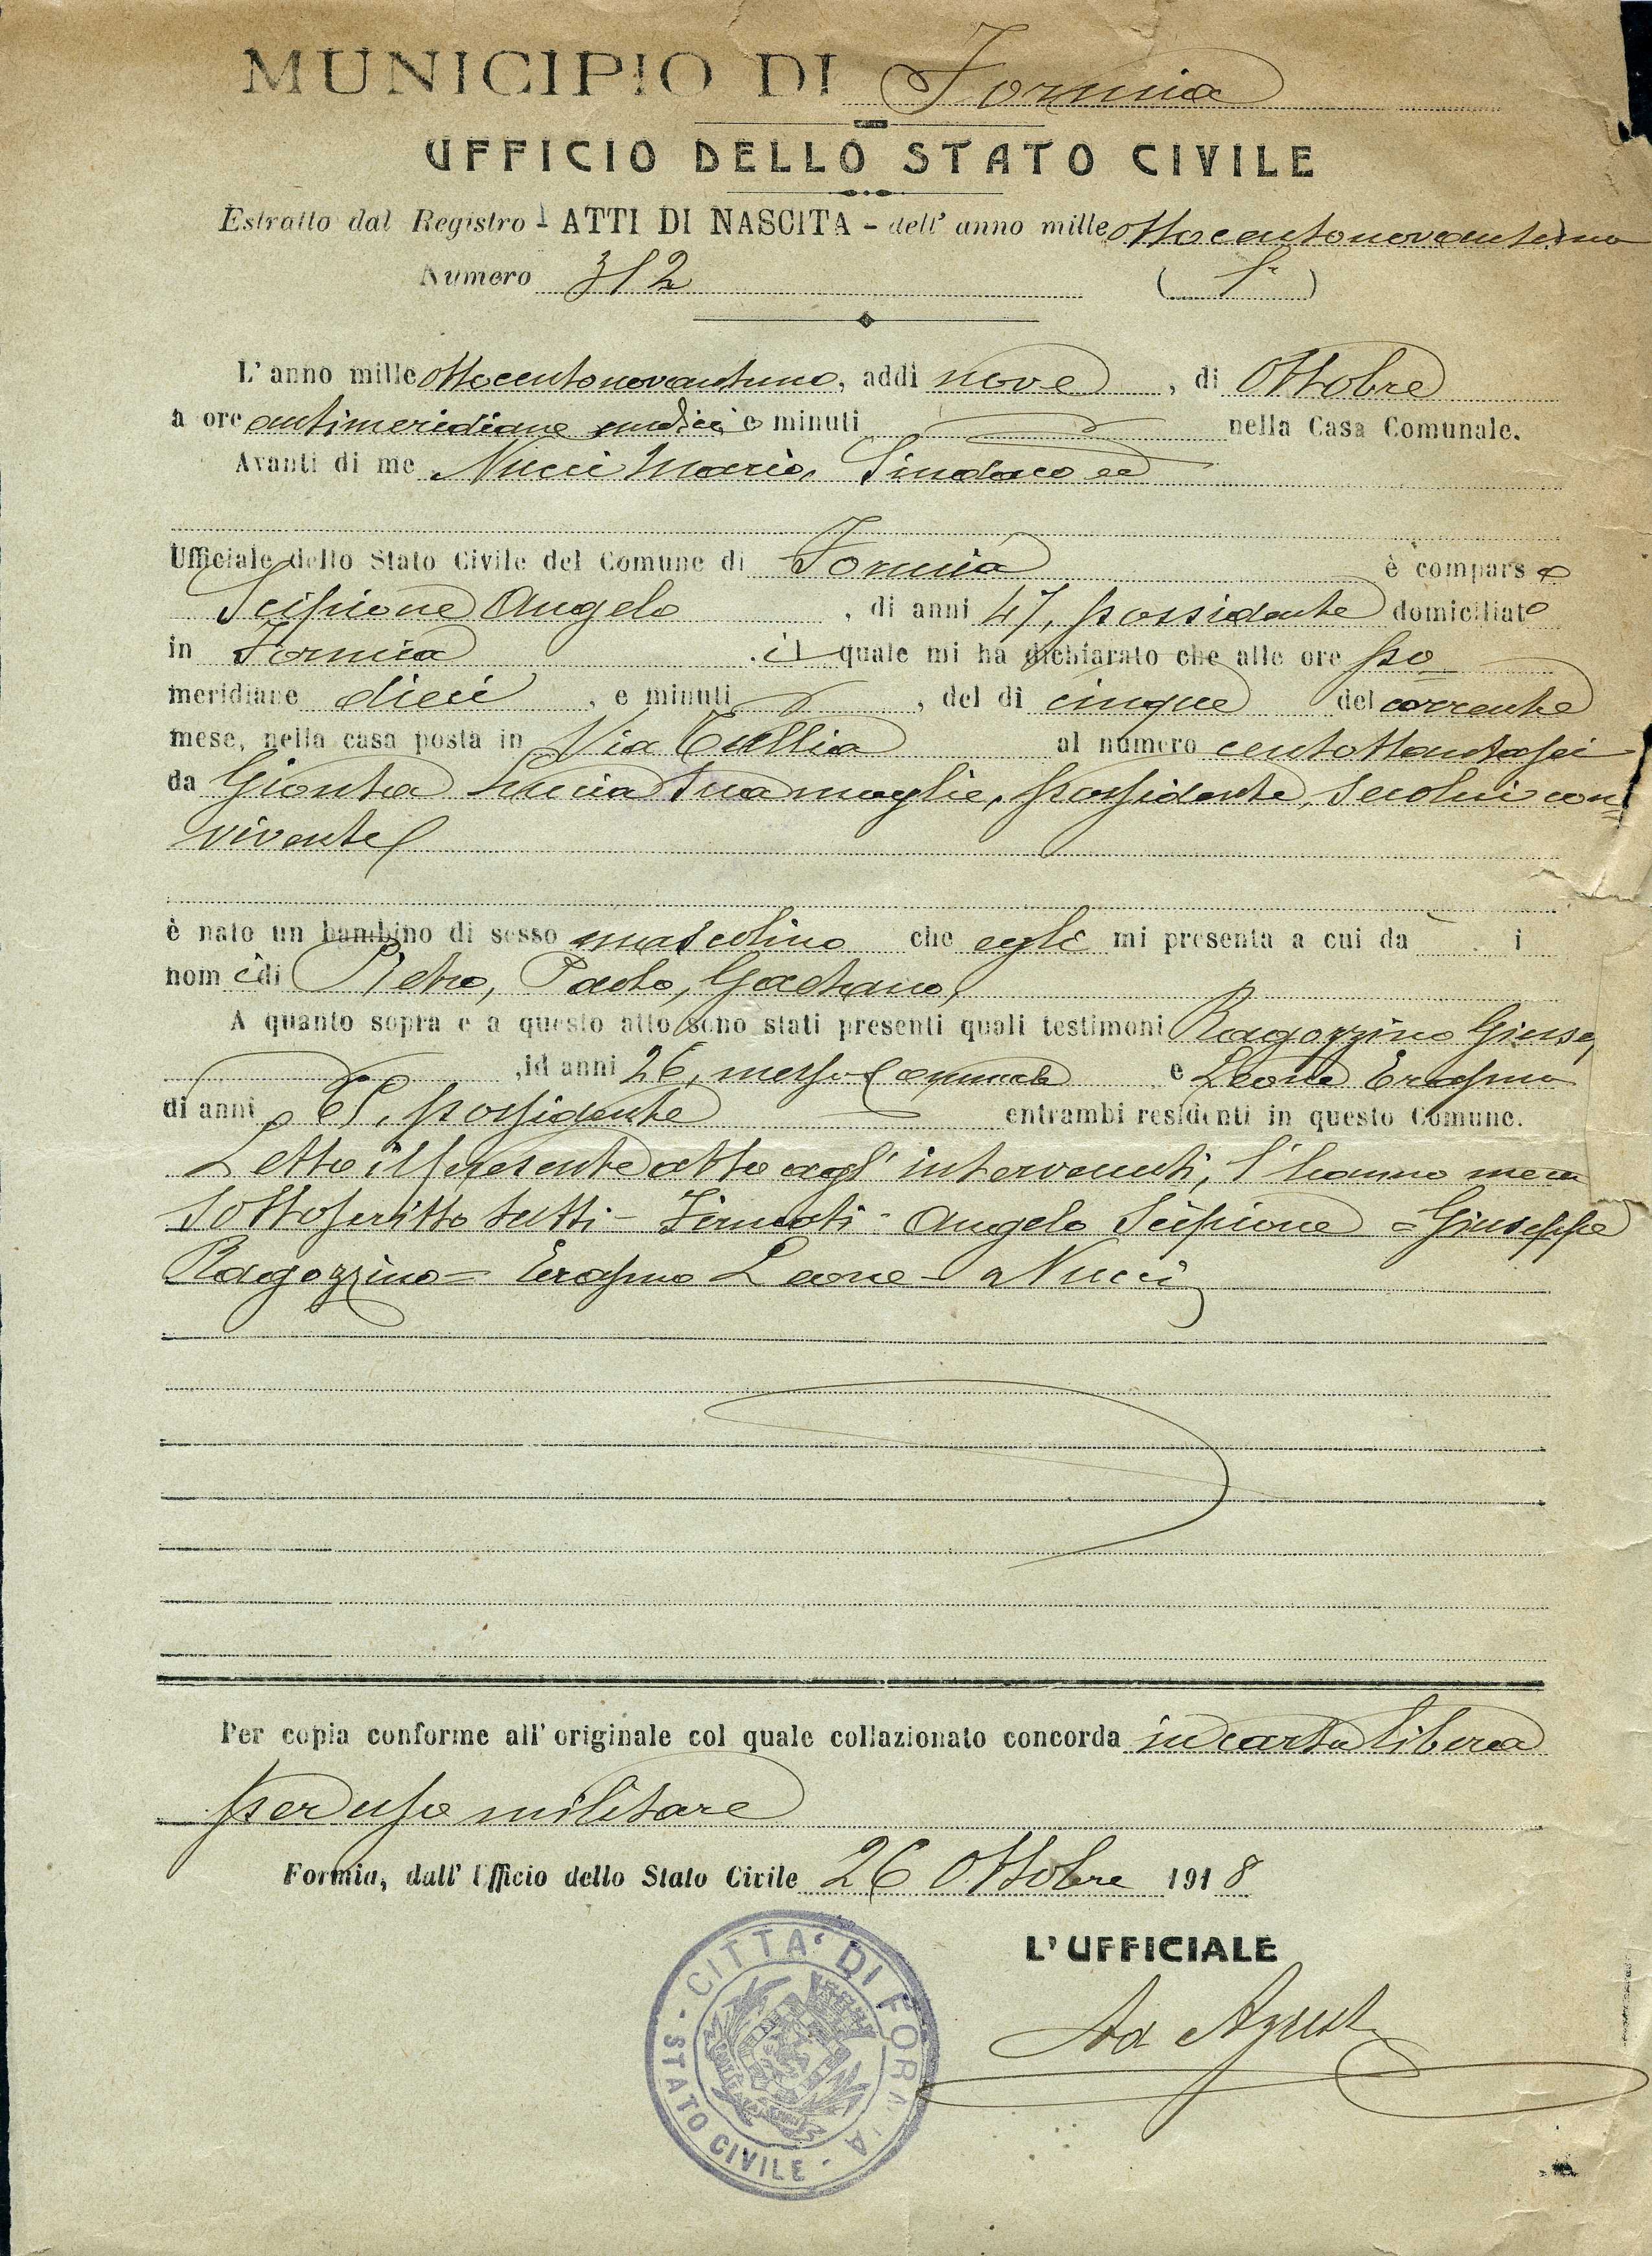 MUNICIPIO DI Formia
UFFICIO DELLO STATO CIVILE
Estratto dal Registro - ATTI DI NASCITA - dell' anno mille ottocentonovantuno
Numero 312 ( 1ª )
L' anno mille ottocentonovantuno, addì nove, di Ottobre
a ore antimeridiane undici e minuti nella Casa Comunale.
Avanti di me Nucci Mario, Sindaco ed
Ufficiale dello Stato Civile del Comune di Formia è comparso
Scipione Angelo, di anni 47, possidente domiciliato
in Formia, il quale mi ha dichiarato che alle ore po
meridiane dieci, e minuti , del dì cinque del corrente
mese, nella casa posta in Via Tullia al numero centottantasei
da Gionta Lucia sua moglie, possidente, secolui con=
vivente
è nato un bambino di sesso mascolino che egli mi presenta a cui da i
nomi di Pietro, Paolo, Gaetano,
A quanto sopra e a questo atto sono stati presenti quali testimoni Ragozzino Giusep
, id anni 26, messo Comunale e Leone Erasmo
di anni possidente entrambi residenti in questo Comune.
Letto il presente atto agl' intervenuti, l'hanno meco
sottoscritto tutti - Firmati - Angelo Scipione = Giuseppe
Ragozzino = Erasmo Leone - Nucci
Per copia conforme all' originale col quale collazionato concorda in carta libera
per uso militare
Formia, dall' Ufficio dello Stato Civile 26 Ottobre 1918
L' UFFICIALE
CITTA' DI FORMIA
STATO CIVILE